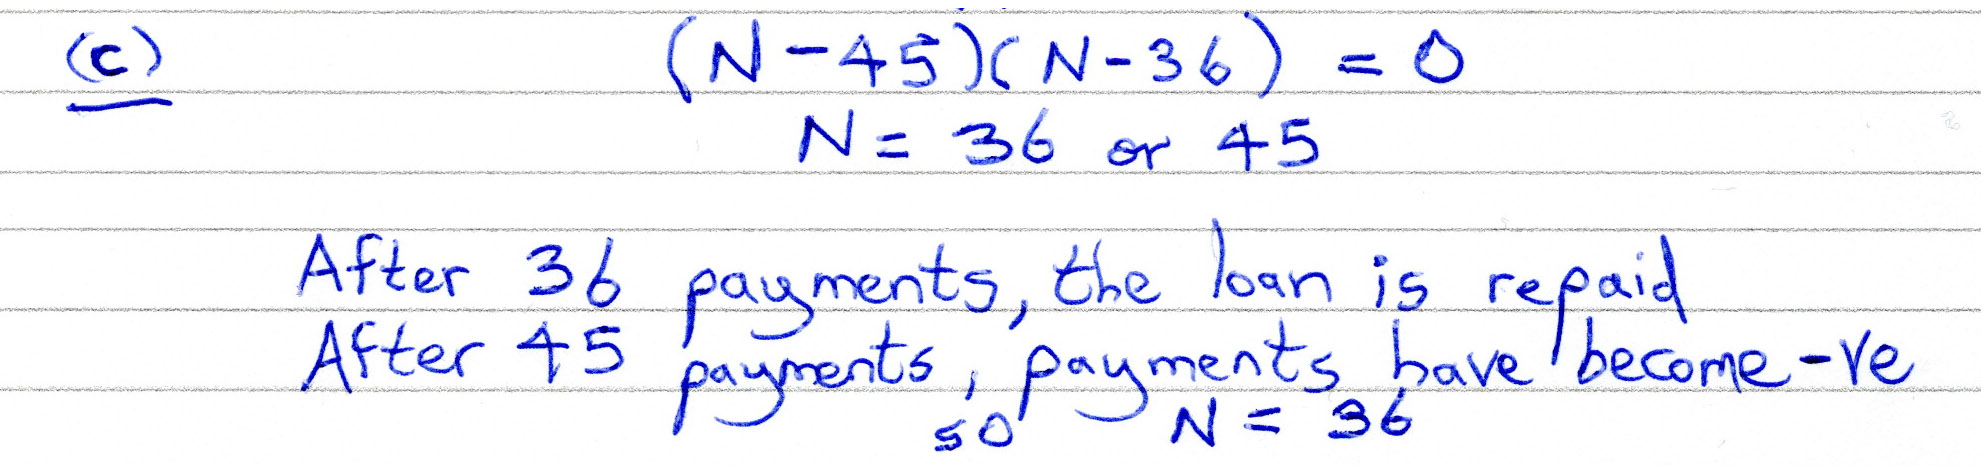 (c) (N-45)(N-36) = 0
N = 36 or 45
After 36 payments, the loan is repaid
After 45 payments, payments have become -ve
so N = 36